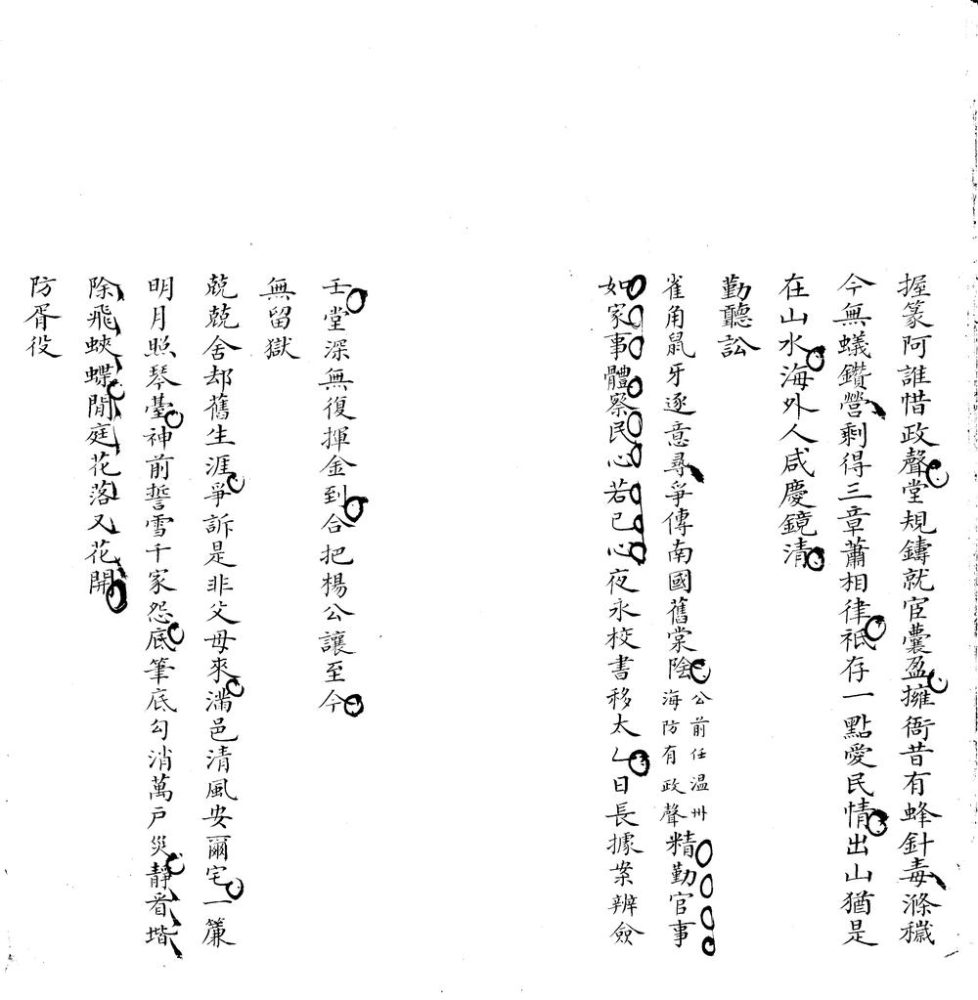 握篆阿誰惜政聲堂規鑄就宦囊盈擁衙昔有蜂針毒滌穢
今無蟻鑽營剩得三章蕭相律祇存一點愛民情出山猶是
在山水海外人咸慶鏡清
勤聽訟
雀角鼠牙逐意尋爭傳南國舊棠陰公前任温州海防有政聲精勤官事
如家事體察民心若己心夜永校書移太乙日長據案辨僉
壬堂深無復揮金到合把楊公讓至今
無留獄
兢兢舍却舊生涯爭訴是非父母來滿邑清風安爾宅一簾
明月照琴臺神前誓雪千家怨底筆底勾消萬戶災靜看堦
除飛蛺蝶閒庭花落又花開
防胥役